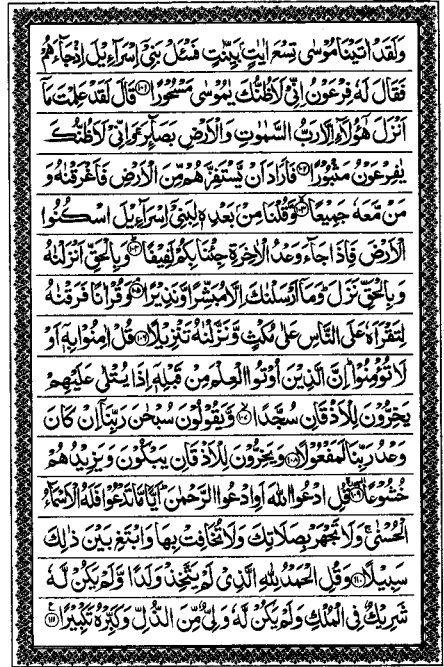 وَلَقَدْ اٰتَيْنَا مُوْسٰى تِسْعَ اٰيٰتٍۢ بَيِّنٰتٍ فَسْئَلْ بَنِيْٓ اِسْرَآءِيْلَ اِذْ جَآءَهُمْ
فَقَالَ لَهٗ فِرْعَوْنُ اِنِّيْ لَاَظُنُّكَ يٰمُوْسٰى مَسْحُوْرًا ﴿۱۰۱﴾ قَالَ لَقَدْ عَلِمْتَ مَآ
اَنْزَلَ هٰٓؤُلَآءِ اِلَّا رَبُّ السَّمٰوٰتِ وَالْاَرْضِ بَصَآئِرَ ۚ وَاِنِّيْ لَاَظُنُّكَ
يٰفِرْعَوْنُ مَثْبُوْرًا ﴿۱۰۲﴾ فَاَرَادَ اَنْ يَّسْتَفِزَّهُمْ مِّنَ الْاَرْضِ فَاَغْرَقْنٰهُ وَ
مَنْ مَّعَهٗ جَمِيْعًا ﴿۱۰۳﴾ وَّقُلْنَا مِنْۢ بَعْدِهٖ لِبَنِيْٓ اِسْرَآءِيْلَ اسْكُنُوا
الْاَرْضَ فَاِذَا جَآءَ وَعْدُ الْاٰخِرَةِ جِئْنَا بِكُمْ لَفِيْفًا ﴿۱۰۴﴾ وَبِالْحَقِّ اَنْزَلْنٰهُ
وَبِالْحَقِّ نَزَلَ ؕ وَمَآ اَرْسَلْنٰكَ اِلَّا مُبَشِّرًا وَّنَذِيْرًا ﴿۱۰۵﴾ وَقُرْاٰنًا فَرَقْنٰهُ
لِتَقْرَاَهٗ عَلَى النَّاسِ عَلٰى مُكْثٍ وَّنَزَّلْنٰهُ تَنْزِيْلًا ﴿۱۰۶﴾ قُلْ اٰمِنُوْا بِهٖٓ اَوْ
لَا تُؤْمِنُوْا ؕ اِنَّ الَّذِيْنَ اُوْتُوا الْعِلْمَ مِنْ قَبْلِهٖٓ اِذَا يُتْلٰى عَلَيْهِمْ
يَخِرُّوْنَ لِلْاَذْقَانِ سُجَّدًا ﴿۱۰۷﴾ وَّيَقُوْلُوْنَ سُبْحٰنَ رَبِّنَآ اِنْ كَانَ
وَعْدُ رَبِّنَا لَمَفْعُوْلًا ﴿۱۰۸﴾ وَيَخِرُّوْنَ لِلْاَذْقَانِ يَبْكُوْنَ وَيَزِيْدُهُمْ
خُشُوْعًا ﴿۱۰۹﴾ قُلِ ادْعُوا اللّٰهَ اَوِ ادْعُوا الرَّحْمٰنَ ؕ اَيًّا مَّا تَدْعُوْا فَلَهُ الْاَسْمَآءُ
الْحُسْنٰى ۚ وَلَا تَجْهَرْ بِصَلَاتِكَ وَلَا تُخَافِتْ بِهَا وَابْتَغِ بَيْنَ ذٰلِكَ
سَبِيْلًا ﴿۱۱۰﴾ وَقُلِ الْحَمْدُ لِلّٰهِ الَّذِيْ لَمْ يَتَّخِذْ وَلَدًا وَّلَمْ يَكُنْ لَّهٗ
شَرِيْكٌ فِي الْمُلْكِ وَلَمْ يَكُنْ لَّهٗ وَلِيٌّ مِّنَ الذُّلِّ وَكَبِّرْهُ تَكْبِيْرًا ﴿۱۱۱﴾